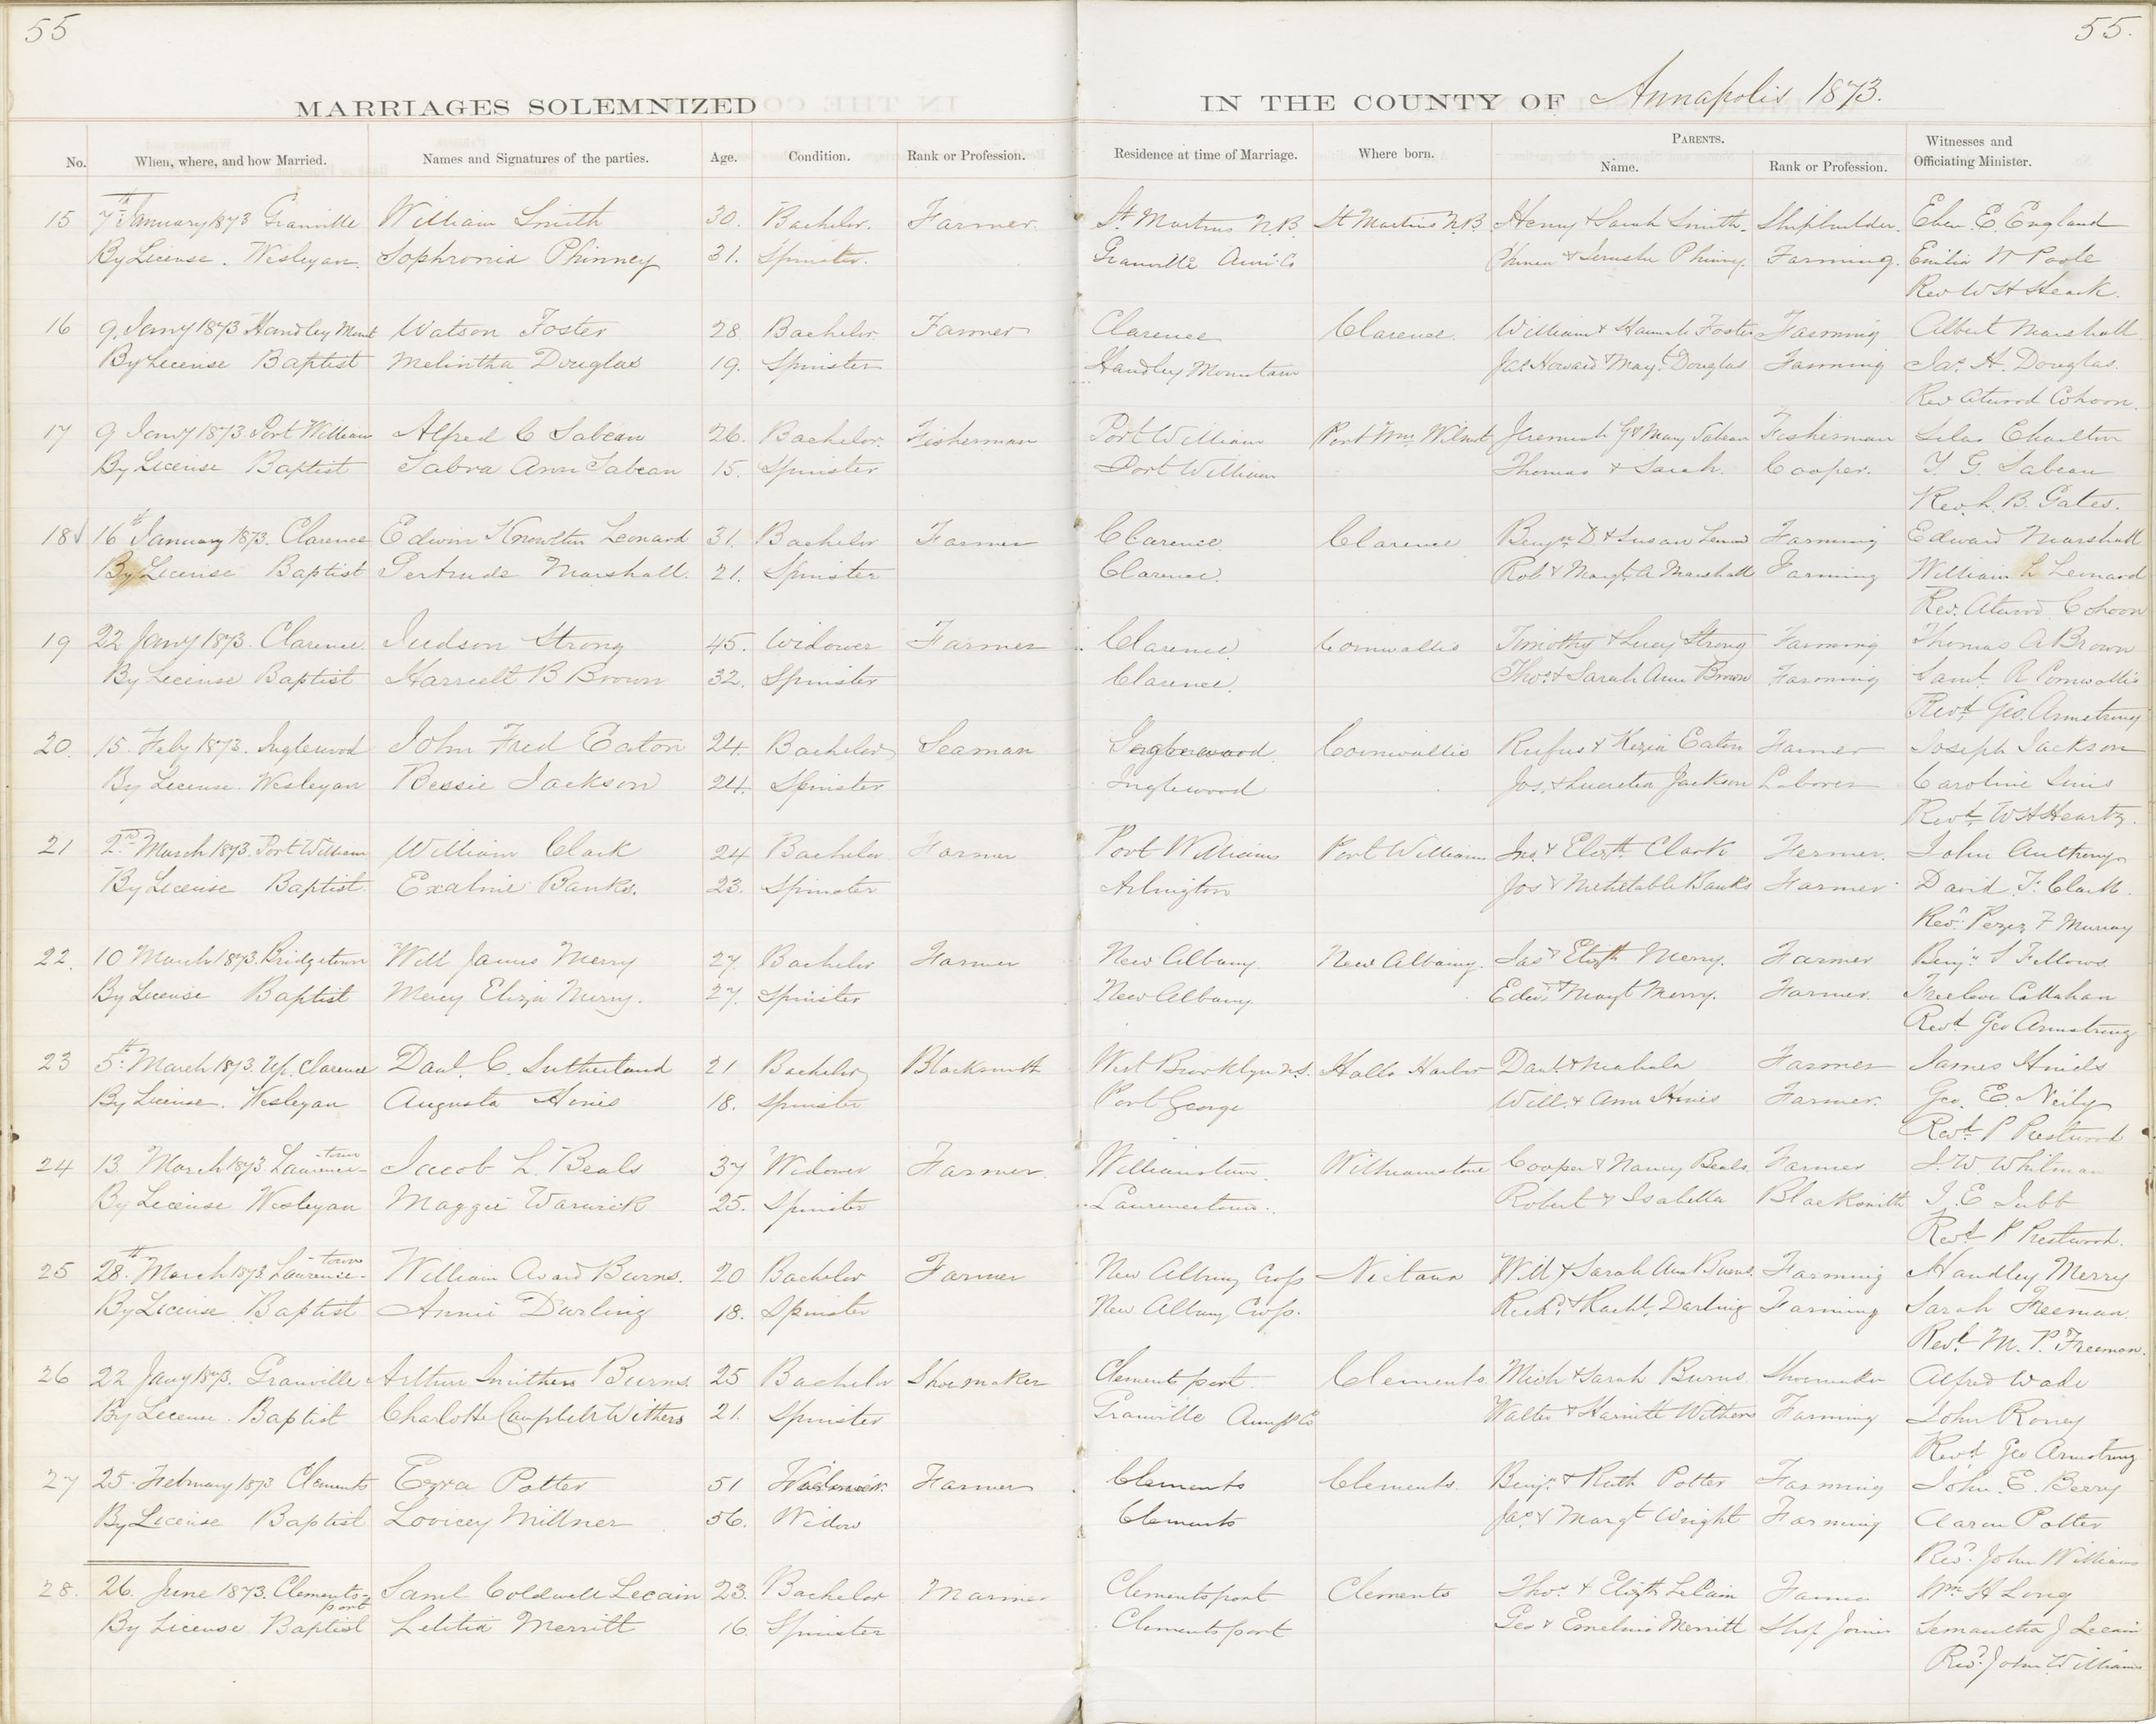 55
55.
MARRIAGES SOLEMNIZED IN THE COUNTY OF Annapolis 1873.
No. When, where, and how Married. Names and Signatures of the parties. Age. Condition. Rank or Profession. Residence at time of Marriage. Where born. PARENTS. Name. Rank or Profession. Witnesses and Officiating Minister.
15 7th January 1873 Granville William Smith 30. Bachelor. Farmer. St. Martins N.B. St Martins N.B. Henry & Sarah Smith. Shipbuilder. Eben E. England
By License. Wesleyan. Sophronia Phinney 31. Spinster. Granville Phinney. Farming. Emilia W Poole
Rev W H
16 9. Jany 1873 Handley Mount Watson Foster 28 Bachelor. Farmer Clarence Clarence. William & Hannah Foster Farming Albert Marshall
By License Baptist Melintha Douglas 19. Spinster Handley Mountain Jas Howard & Mary Douglas Farming Jas. H. Douglas.
Rev Atwood Cohoon.
17 9 Jany 1873. Port William Alfred C Sabean 26. Bachelor. Fisherman Port William Port Wm. Wilmot Jeremiah G & Mary Sabean Fisherman Silas Charlton
By License Baptist Sabra Ann Sabean 15. Spinster Port William Thomas & Sarah. Cooper. G. Sabean
Rev. B. Gates.
18 16th January 1873. Clarence Edwin Knowlton Leonard 31. Bachelor Farmer Clarence Clarence Benjn D & Susan Leonard Farming Edward Marshall
By License Baptist Gertrude Marshall. 21. Spinster Clarence. Robt & Margt A Marshall Farming William L Leonard
Rev. Atwood Cohoon
19 22 Jany 1873. Clarence. Judson Strong 45. Widower Farmer Clarence. Cornwallis Timothy & Lucy Strong Farming Thomas A Brown
By License Baptist Harriett B Brown 32. Spinster Clarence. Thos. & Sarah Ann Brown Farming Saml. R
Revd. Geo. Armstrong
20. 15. Feby 1873. Inglewood John Fred Eaton 24. Bachelor Seaman Inglewood. Cornwallis Rufus & Kezia Eaton Farmer Joseph Jackson
By License. Wesleyan Bessie Jackson 24. Spinster Inglewood Jos. & Lucretia Jackson Laborer Caroline Sims
Revd. W H Heartz.
21 2nd March 1873. Port William William Clark 24 Bachelor Farmer Port Williams Port Williams Jno. & Elizth. Clark Farmer. John Anthony
By License Baptist. Exaline Banks. 23. Spinster Arlington Jos & Mehetable Banks Farmer David F. Clark.
Revd. Perez F Murray
22. 10 March 1873. Bridgetown Will James Merry 27 Bachelor Farmer New Albany. New Albany. Jas & Elizth Merry. Farmer Benj. S Fellows.
By License Baptist Mercy Eliza Merry. 27. Spinster New Albany Edwd. & Margt Merry. Farmer. Freelove Callahan
Revd Geo Armstrong
23 5th. March 1873. Up. Clarence Danl. C. Sutherland 21 Bachelor Blacksmith West Brooklyn N.S. Halls Harbor Danl. & Mahala Farmer James Hinds
By License. Wesleyan Augusta Hines 18. Spinster Port George Will. & Ann Hines Farmer. Geo. E. Neily
Revd. P Prestwood
24 13 March 1873. Laurence-town Jacob L. Beals 37 Widower Farmer. Williamstown. Williamstone Cooper & Nancy Beals Farmer J. W. Whitman
By License Wesleyan Maggie Warwick 25. Spinster Laurencetown. Robert & Isabella Blacksmith J. E. Jubb
Revd P Prestwood.
25 28th. March 1873. Laurence-town William Avard Burns. 20 Bachelor Farmer New Albany Crofs Nictaux Will & Sarah Ann Burns. Farming Handley Merry
By License Baptist Annie Darling 18. Spinster New Albany Crofs. Richd. & Rachl. Darling Farming Sarah Freeman.
Revd. M. P. Freeman.
26 22 Jany 1873. Granville Arthur Smithers Burns. 25 Bachelor Shoemaker Clementsport. Clements. Mich & Sarah Burns Shoemaker Alfred Wade
By License. Baptist Charlotte Campbell Withers 21. Spinster Granville Walter & Harriett Withers Farming John Roney
Revd Geo Armstrong
27 25. February 1873 Clements Ezra Potter 51 Widower. Farmer Clements Clements. Benj. & Ruth Potter Farming John. E. Berry
By License Baptist Lovicey Millner 56. Widow Clements Jas. & Margt Wright Farming Aaron Potter
Revd. John Williams
28. 26. June 1873. Clements-port Saml Coldwell Lecain 23. Bachelor Mariner Clementsport Clements Thos. & Elizth LeCain Farmer Wm H Long
By License Baptist Letitia Merritt 16. Spinster Clementsport Geo & Emeline Merritt Ship Joiner Semantha J Lecain
Revd. John Williams